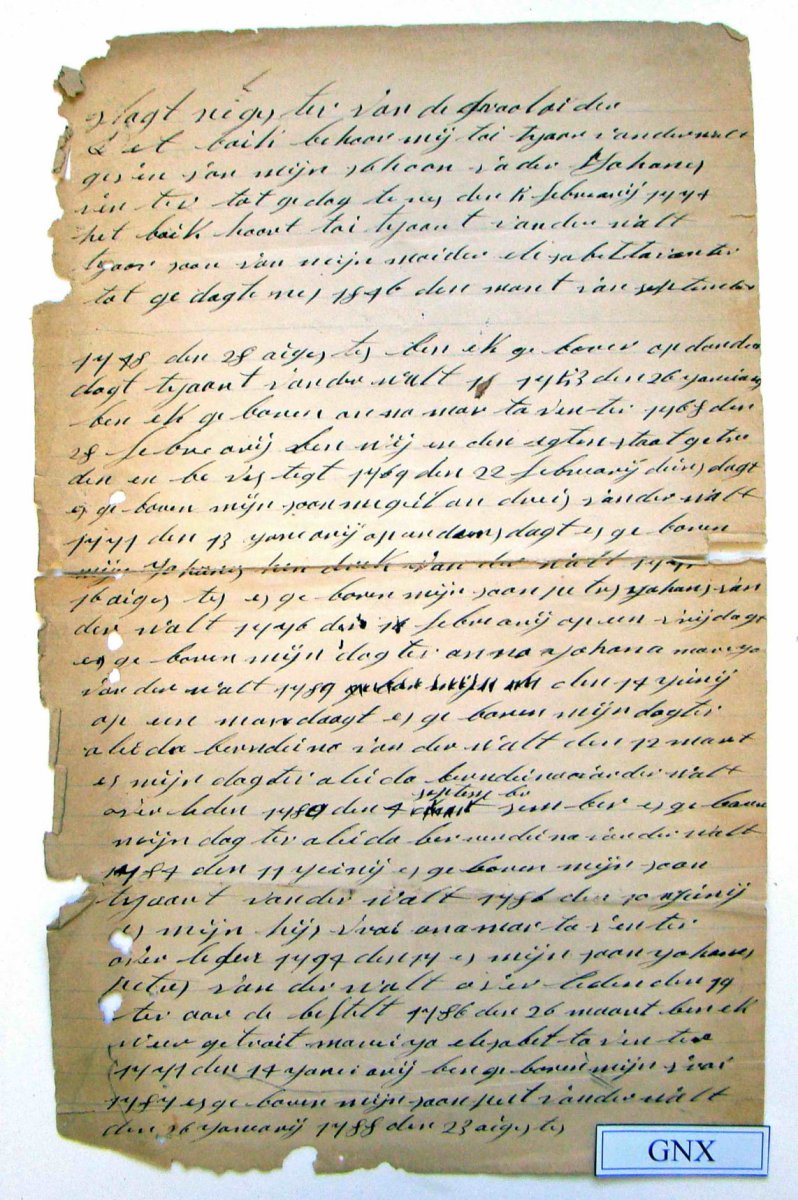 slagt regester van de
het boik behoor mij toi tyaar vanderwalt
geven van mijn schoon vader Yohanes
venter tot gedagtenes den 11 februarij 1774
het boik hoort toi tyaart vander walt
tyaar soon van mijn moider elesabet ta venter
tot gedagtenes 1846 den mant van september
1748 den 28 aigestes ben ek geboren op donder
dagt tyaart vander walt 1753 den 26
ben ek geboren anna marta venter 1768 den
28 febreuarij ben wij en den egten staat getre
den en be ves tegt 1769 den 22 februarij deinsdagt
es geboren mijn soon megeil an dreis vander walt
1771 den 13 yanuarij op en dagt es geboren
mijn Yohanes hendrik van der walt
16 aigestes es geboren mijn soon petres yohanes van
der walt 1776 den februarij op een vrijdagt
es geboren mijn dagter anna yohana mareya
van der walt 1780 den 14 yeinij
op een mandaagt es geboren mijn dagter
aleida berndeina van der walt den 12 mart
es mijn dagter aleida berndeina vander walt
over leden 178 den 4 september es geboren
mijn dagter aleida berendeina vander walt
1784 den 11 yeinij es geboren mijn soon
tyaart vander walt 1786 den 10 yeinij
es mijn hijs vroi ana marta venter
over leden 1794 den 17 es mijn soon yohanes
petres van der walt over leden den 19
ter aar de bestelt 1786 den 26 maart ben ek
weer getroit mareiya elesabet ta venter
1771 den 14 yaneiarij ben geboren mijn vroi
1787 es geboren mijn soon peit vander walt
den 26 yanuarij 1788 den 23 aigestes
GNX